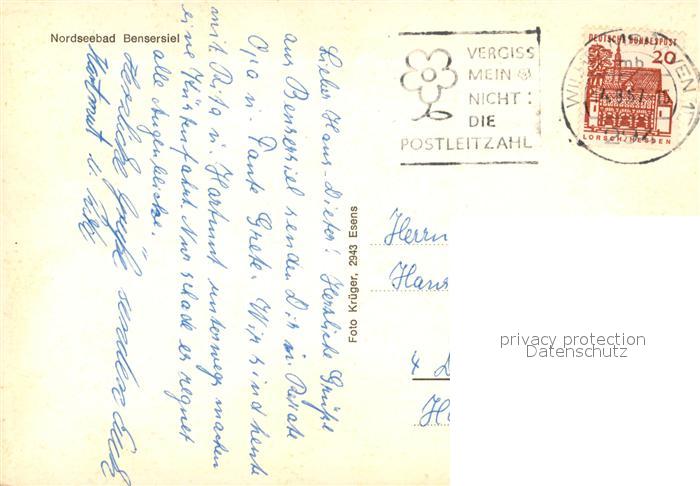 Nordseebad Bensersiel
Lieber Hans-Dieter! Herzliche Grüße
aus Bensersiel senden Dir u. Renate
Opa u. Tante Grete. Wir sind heute
mit Rita u. Hartmut unterwegs machen
eine Küstenfahrt. Nur schade es regnet
alle Augenblicke.
Herzliche Grüße senden Euch
Hartmut u. Rita
Foto Krüger, 2943 Esens
VERGISS
MEIN
NICHT:
DIE
POSTLEITZAHL
DEUTSCHE BUNDESPOST
20
LORSCH/HESSEN
Herrn
Hans
4 D
privacy protection
Datenschutz